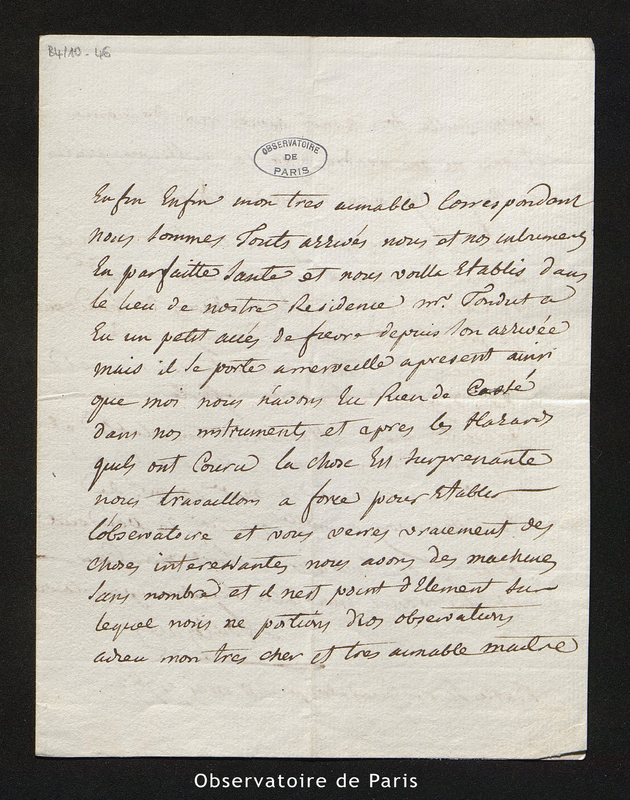 B4/10-46
OBSERVATOIRE
DE
PARIS
Enfin Enfin mon tres aimable Correspondant
nous sommes Touts arrivés nous et nos instruments
En parfaitte Sante et nous voilla Etablis dans
le lieu de nostre Residence mr. Tondut a
Eu un petit accés de fievre depuis son arrivée
mais il se porte a merveille apresent ainsi
que moi nous n'avons Eu Rien de Cassé
dans nos instruments et apres les Hazards
quils ont Couru la chose Est surprenante
nous travaillons a force pour Etablir
l'observatoire et vous verres vraiement des
choses interessantes nous avons des machines
sans nombre et il nest point d'Element sur
lequel nous ne portions nos observations
adieu mon tres cher et tres aimable maitre
Observatoire de Paris